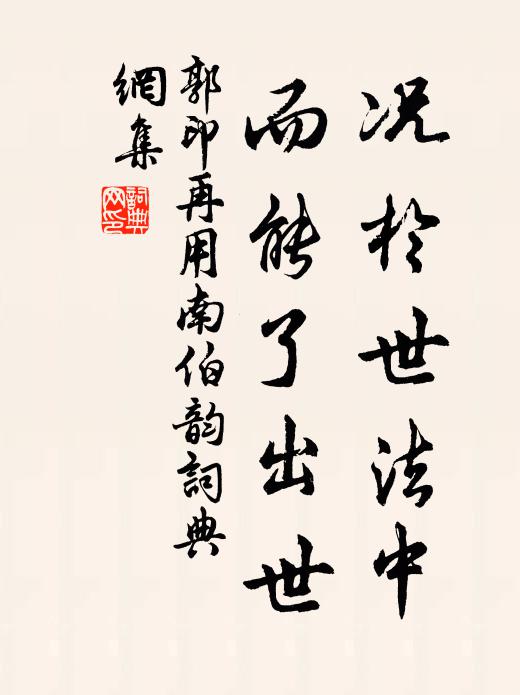 况於世法中
而能了出世
郭印再用南伯韵詞典
網集
詞典網印